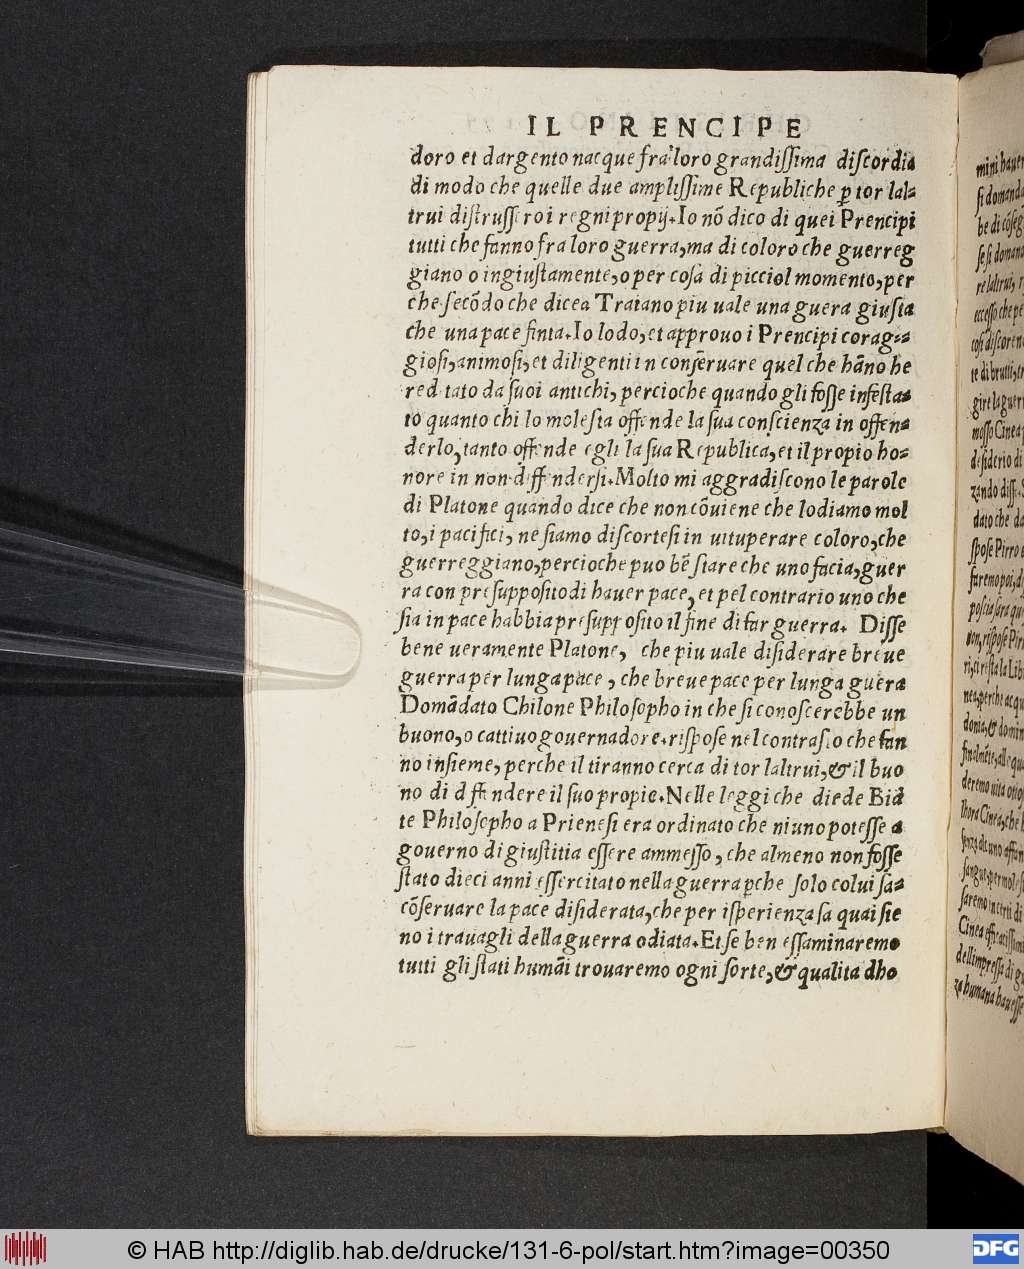 IL PRENCIPE
doro et dargento nacque fra loro grandiſſima diſcordia
di modo che quelle due ampliſſime Republiche ꝑ tor lal=
trui diſtruſſeroi i regni propij. Io nō dico di quei Prencipi
tutti che fanno fra loro guerra, ma di coloro che guerreg
giano o ingiuſtamente, o per coſa di picciol momento, per
che ſecōdo che dicea Traiano piu uale una guera giuſta
che una pace finta. Io lodo, et approuo i Prencipi corag=
gioſi, animoſi, et diligenti in conſeruare quel che hāno he
reditato da ſuoi antichi, percioche quando gli foſſe infeſta=
to quanto chi lo moleſta offende la ſua conſcienza in offen=
derlo, tanto offende egli la ſua Republica, et il propio ho=
nore in non diffenderſi. Molto mi aggradiſcono le parole
di Platone quando dice che non cōuiene che lodiamo mol
to, i pacifici, ne ſiamo diſcorteſi in uituperare coloro, che
guerreggiano, percioche puo bē ſtare che uno facia, guer
ra con preſuppoſito di hauer pace, et pel contrario uno che
ſia in pace habbia preſuppoſito il fine di far guerra. Diſſe
bene ueramente Platone, che piu uale diſiderare breue
guerra per lunga pace, che breue pace per lunga guera
Domādato Chilone Philoſopho in che ſi conoſcerebbe un
buono, o cattiuo gouernadore. riſpoſe nel contraſto che fan
no inſieme, perche il tiranno cerca di tor laltrui, & il buo
no di diffendere il ſuo propio. Nelle leggi che diede Bia
te Philoſopho a Prieneſi era ordinato che niuno poteſſe a
gouerno di giuſtitia eſſere ammeſſo, che almeno non foſſe
ſtato dieci anni eſſercitato nella guerra ꝑche ſolo colui ſa=
cōſeruare la pace diſiderata, che per iſperienza ſa quai ſie
no i trauagli della guerra odiata. Et ſe ben eſſaminaremo
tutti gli ſtati humāi trouaremo ogni ſorte, & qualita dho
mini hauer
ſi domanda
be di cōſeg
ſe ſi domand
re laltrui,
ecceſſo che pe
coſi diſcoren
te di brutti,
gire la guer
moſſo Cinea
deſiderio di
zando diſſe.
dato che da
ſpoſe Pirro
faremo poi, d
poſcia ſara qu
non, riſpoſe Pir
ri, ci reſta la Lib
nea, perche acqu
donia, & domin
finalmēte, alle qua
deremo uita otio
lhora Cinea, che
ſenza alcuno affan
ſangue, per
ſaremo incerti di
Cinea efficaciſſim
dellimpreſſa di
za humana haueſſe
© HAB http://diglib.hab.de/drucke/131-6-pol/start.htm?image=00350
DFG